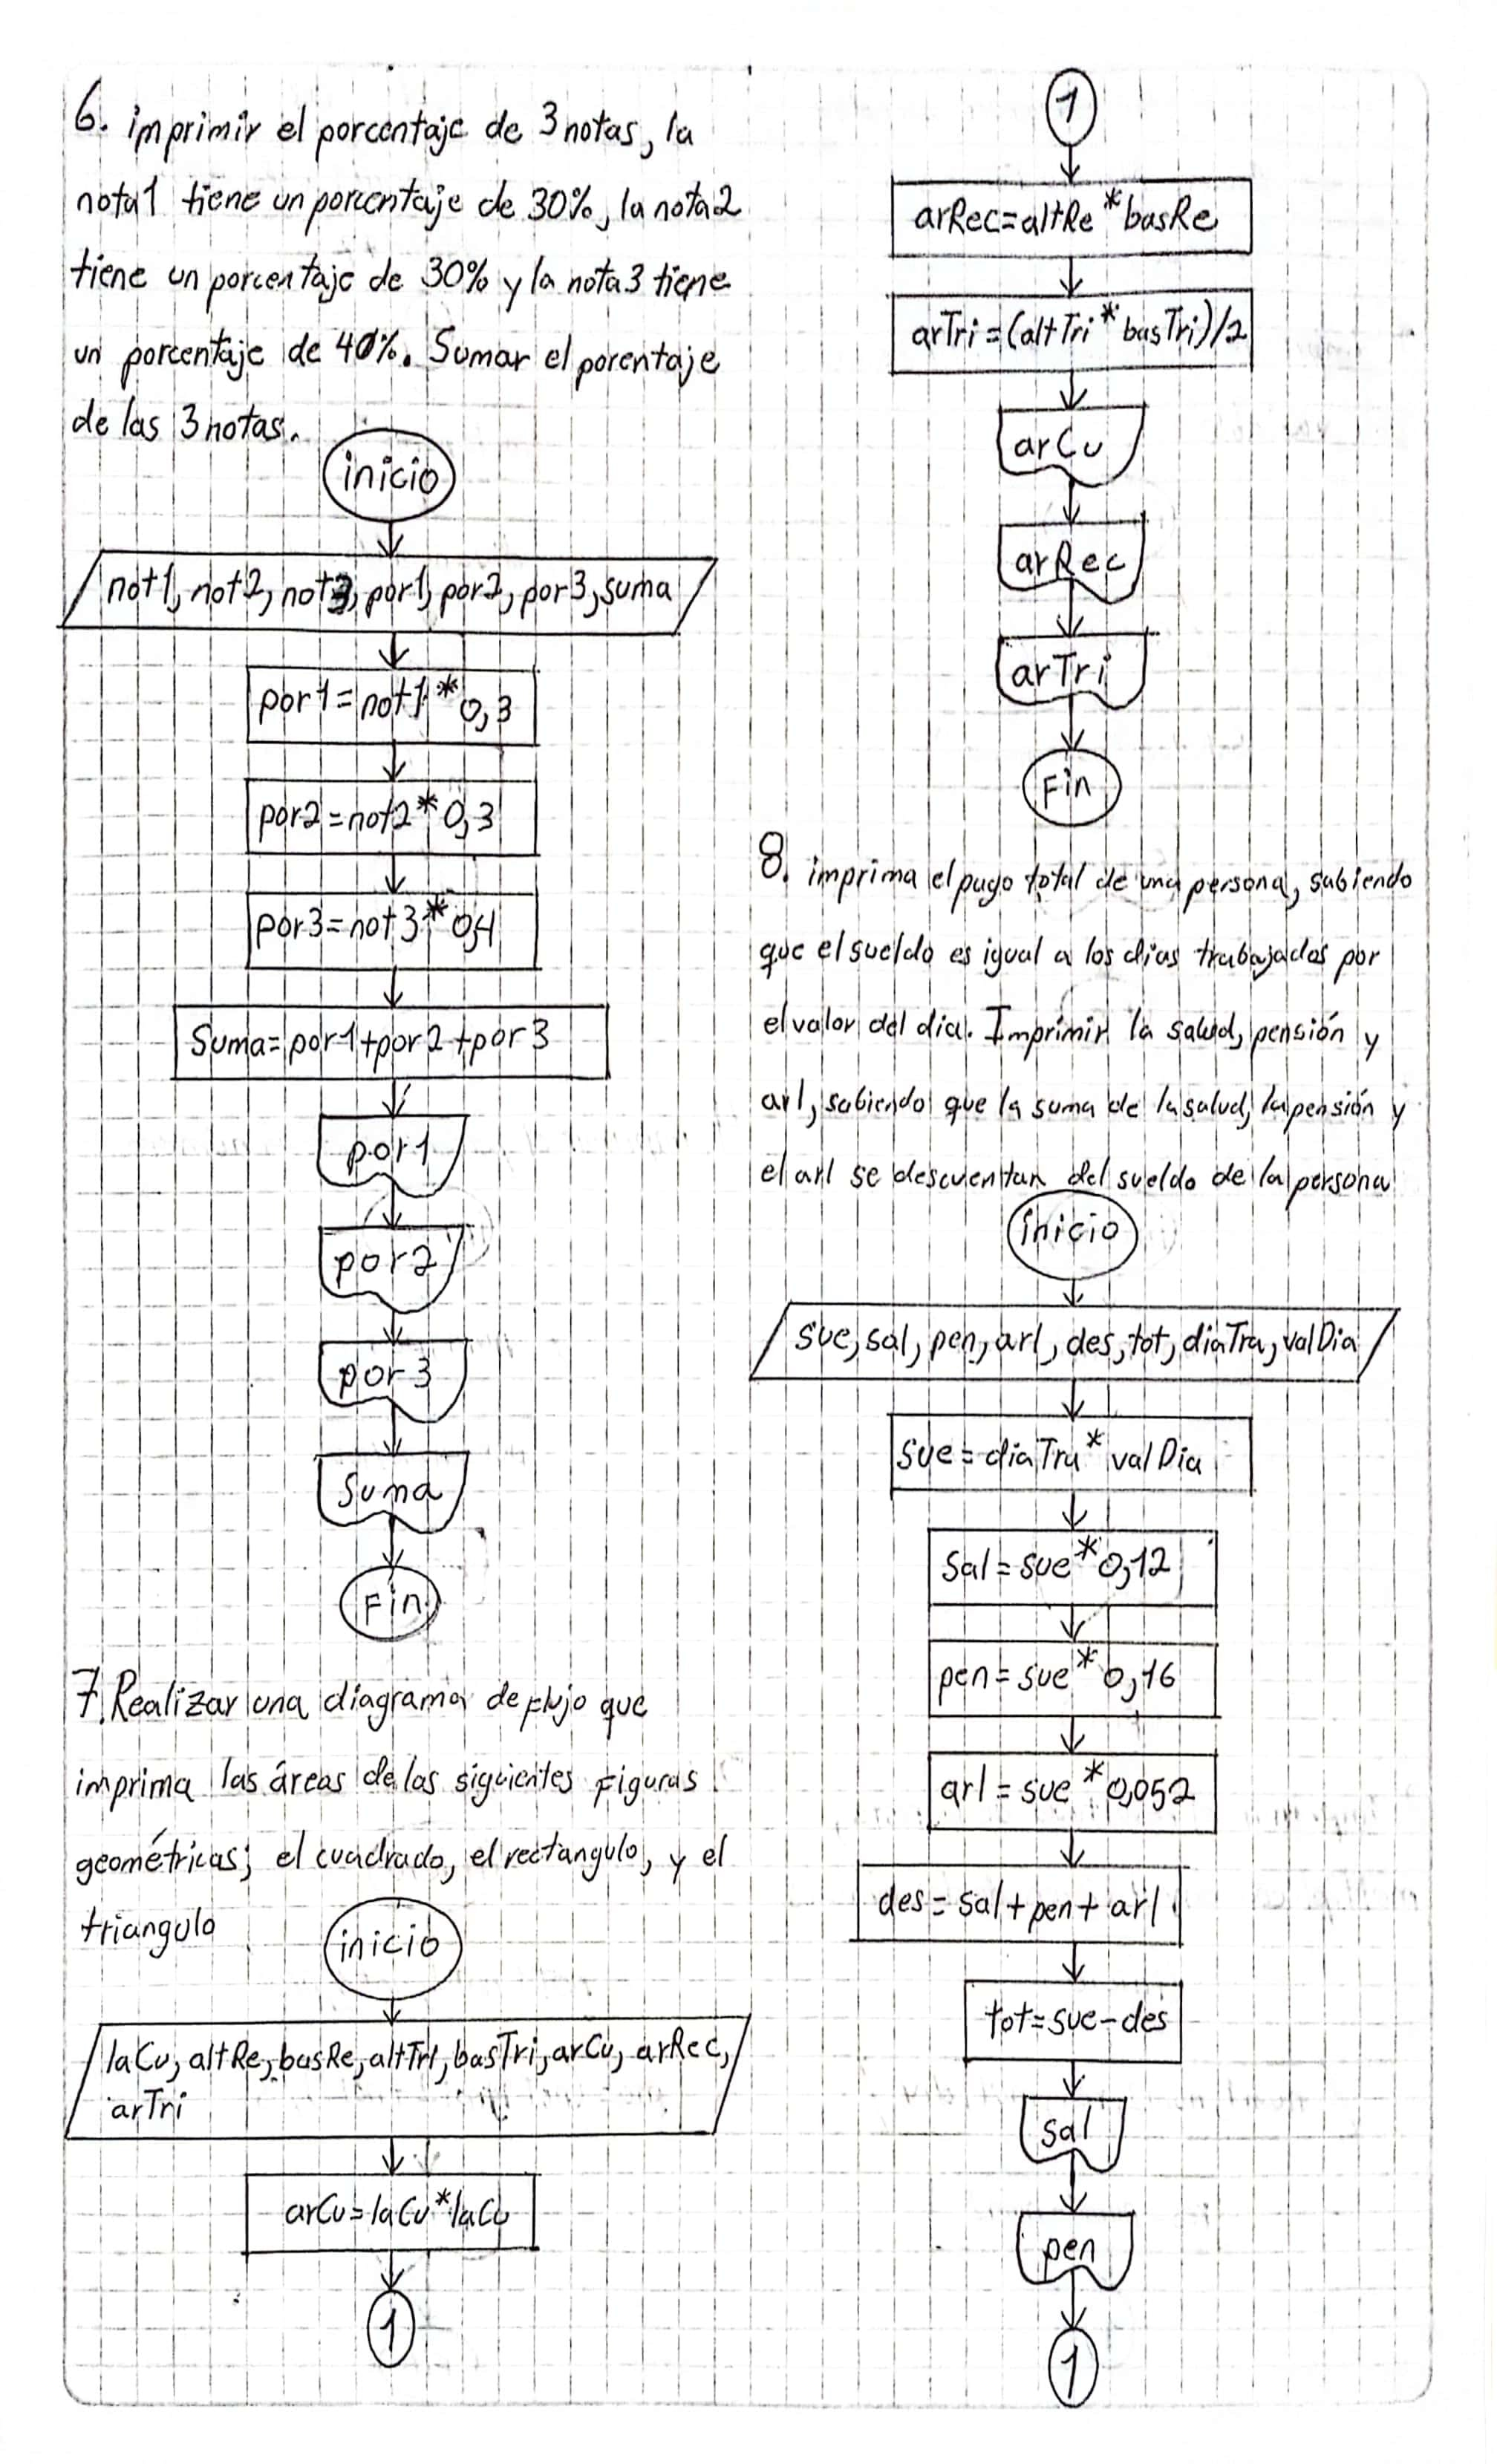 6. imprimir el porcentaje de 3 notas, la
nota1 tiene un porcentaje de 30%, la nota2
tiene un porcentaje de 30% y la nota3 tiene
un porcentaje de 40%. Sumar el porentaje
de las 3 notas.
inicio
not1, not2, not3, por1, por2, por3, suma
por1=not1*0,3
por2=not2*0,3
por3=not3*0,4
Suma=por1+por2+por3
por1
por2
por3
Suma
Fin
7. Realizar una diagrama de flujo que
imprima las áreas de las siguientes figuras
geométricas; el cuadrado, el rectangulo, y el
triangulo
inicio
laCu, altRe, basRe, altTri, basTri, arCu, arRec,
arTri
arCu=laCu*laCu
1
1
arRec=altRe*basRe
arTri=(altTri*basTri)/2
arCu
arRec
arTri
Fin
8. imprima el pago total de una persona, sabiendo
que el sueldo es igual a los dias trabajados por
el valor del dia. Imprimir la salud, pensión y
arl, sabiendo que la suma de la salud, la pensión y
el arl se descuentan del sueldo de la persona
inicio
sue, sal, pen, arl, des, tot, diaTra, valDia
sue=diaTra*valDia
Sal=sue*0,12
pen=sue*0,16
arl=sue*0,052
des=sal+pen+arl
tot=sue-des
sal
pen
1